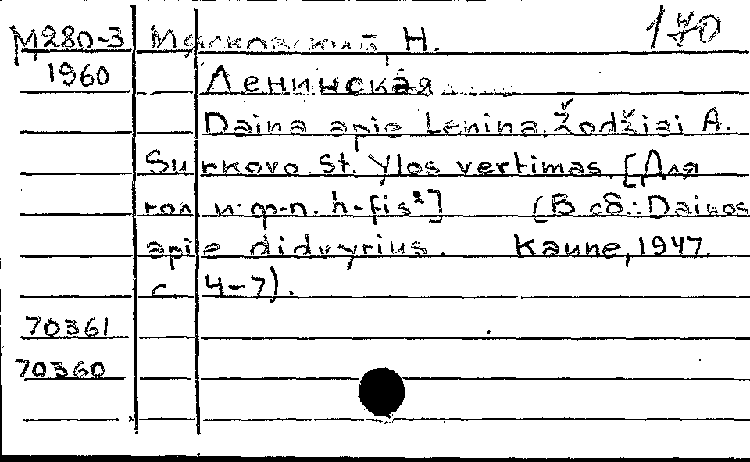 М280-3 Мясковский, Н. 170
1960 Ленинская
Daina apie Lenina. Žodžiai A.
Surkovo. St. Ylos vertimas. [Для
гол. и ф-п. h-fis²] (В сб.: Dainos
apie didvyrius. Kaune, 1947.
с. 4-7).
70361
70360